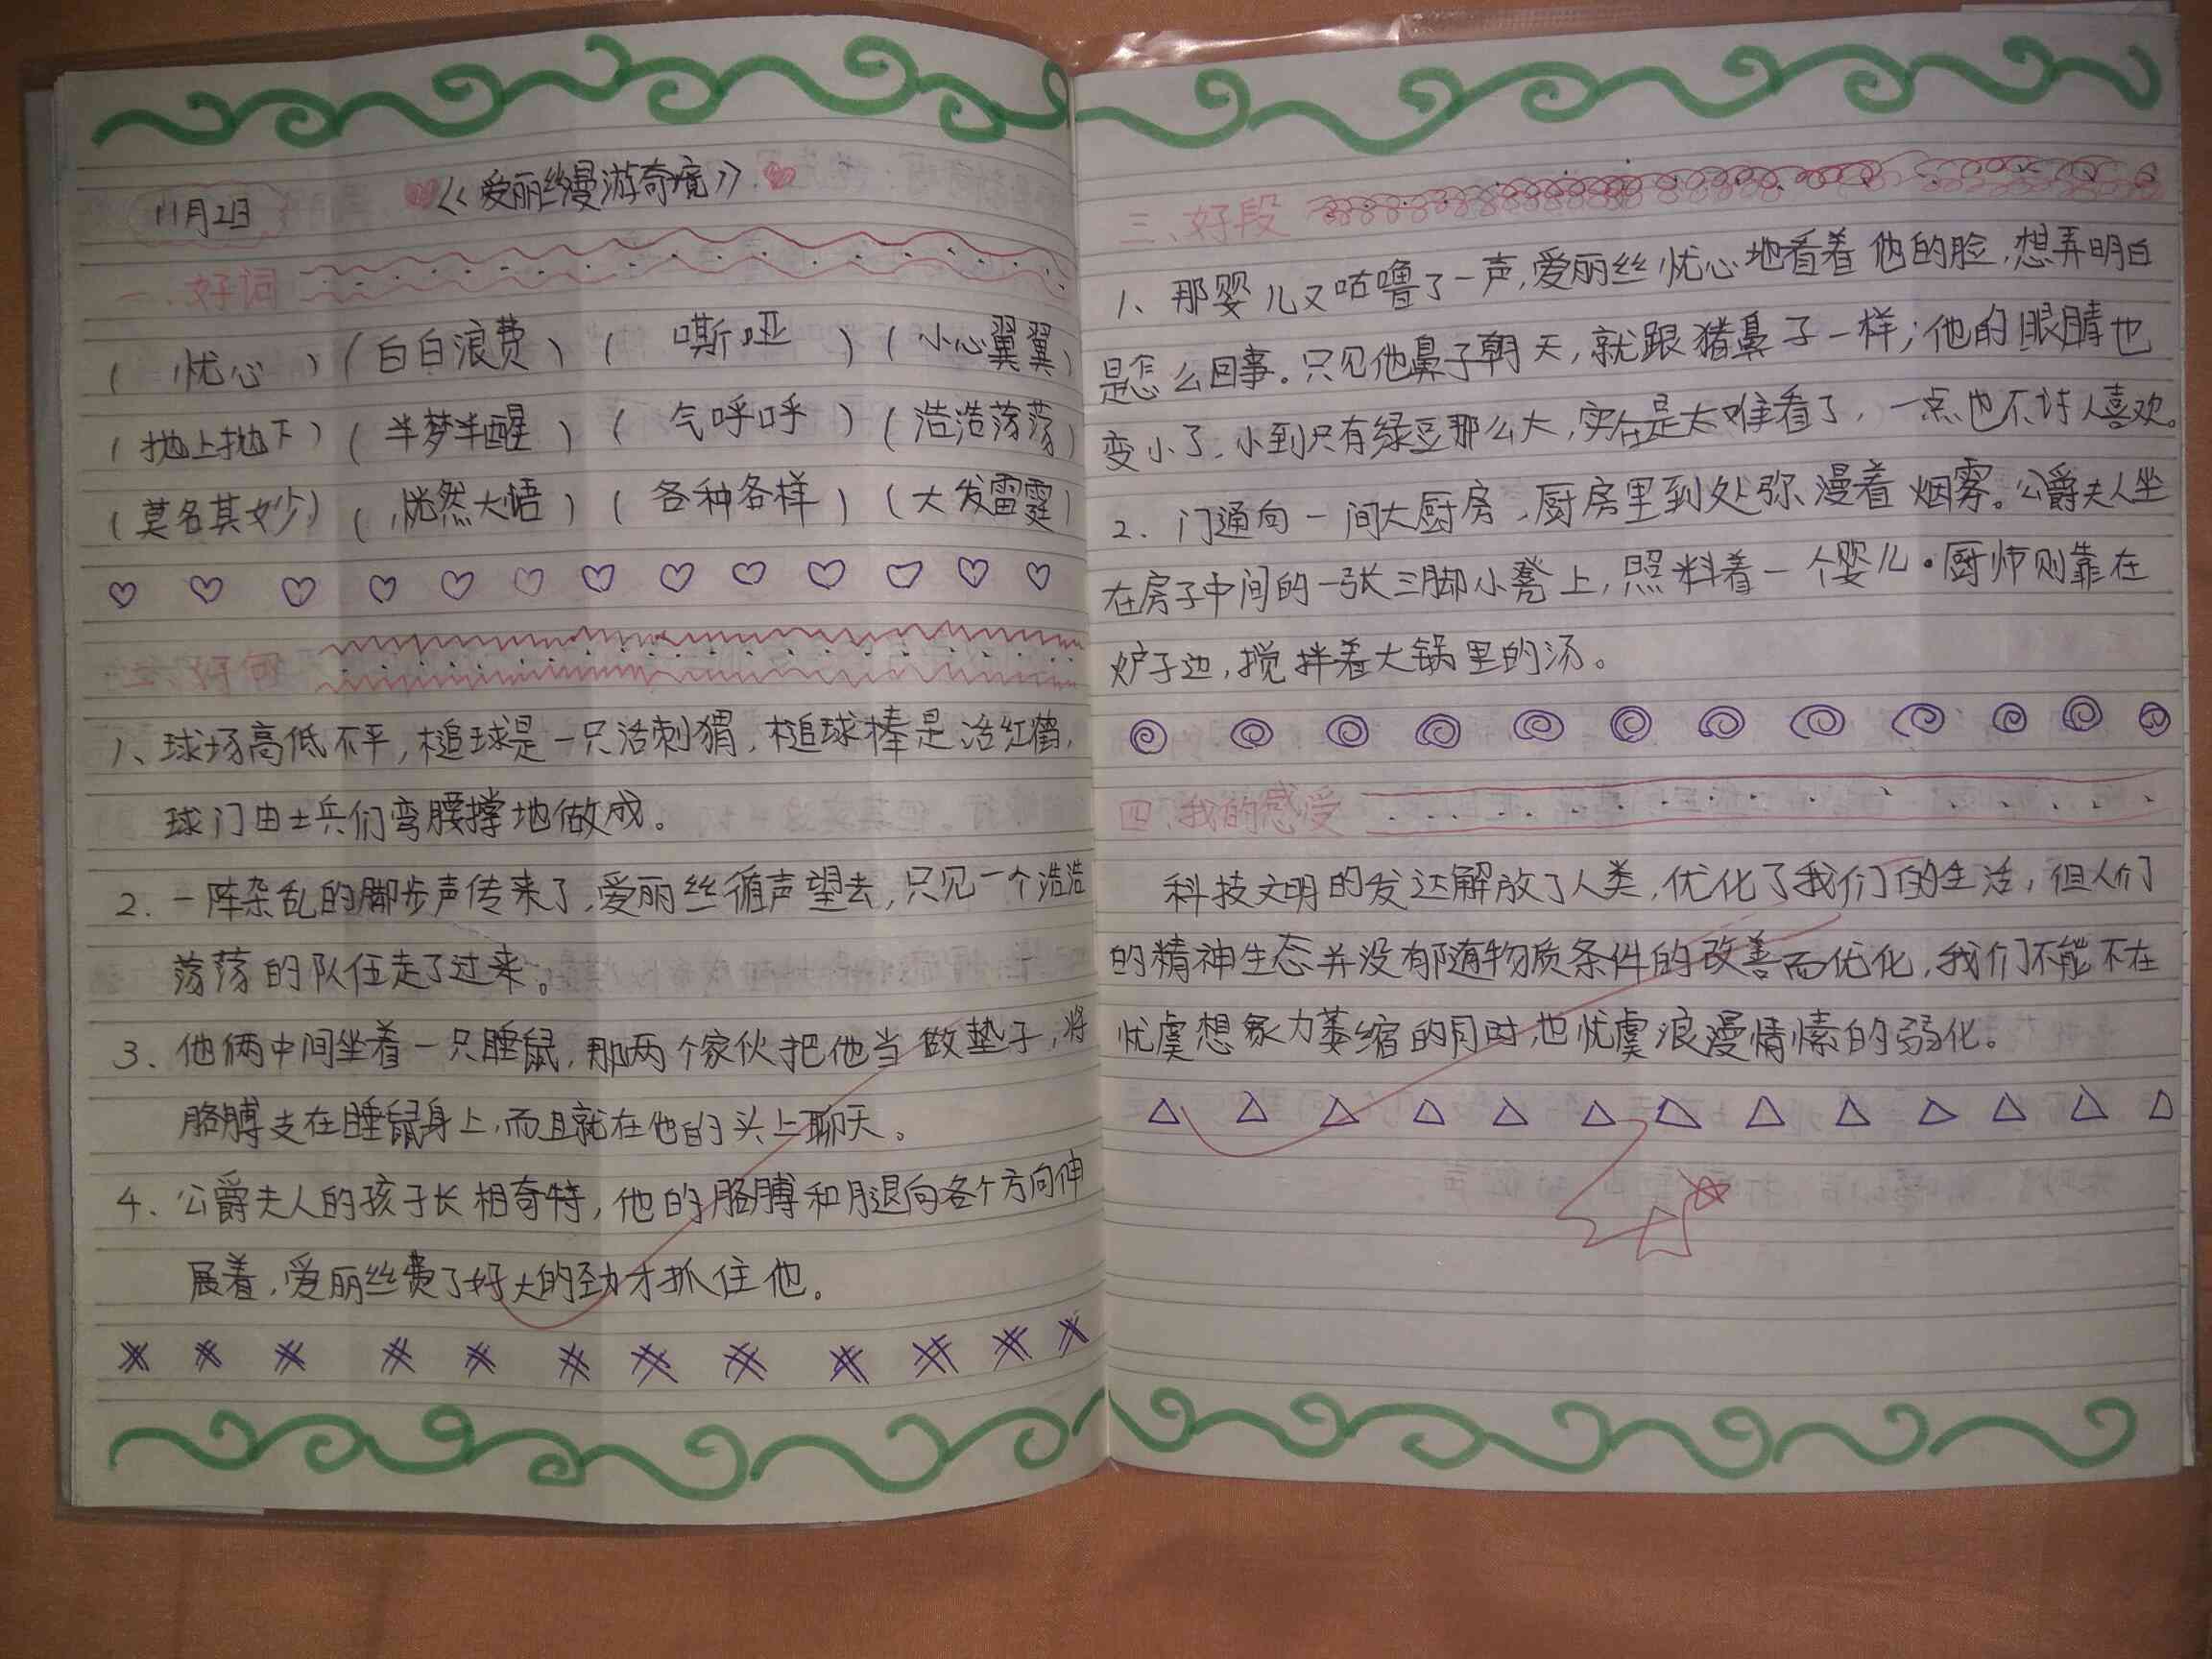 11月2日
《爱丽丝漫游奇境》
一、好词
(忧心)(白白浪费)(嘶哑)(小心翼翼)
(抛上抛下)(半梦半醒)(气呼呼)(浩浩荡荡)
(莫名其妙)(恍然大悟)(各种各样)(大发雷霆)
二、好句
1、球场高低不平,槌球是一只活刺猬,槌球棒是活红鹤,
球门由士兵们弯腰撑地做成。
2.一阵杂乱的脚步声传来了,爱丽丝循声望去,只见一个浩浩
荡荡的队伍走了过来。
3、他俩中间坐着一只睡鼠,那两个家伙把他当做垫子,将
胳膊支在睡鼠身上,而且就在他的头上聊天。
4、公爵夫人的孩子长相奇特,他的胳膊和腿向各个方向伸
展着,爱丽丝费了好大的劲才抓住他。
三、好段
1、那婴儿又咕噜了一声,爱丽丝忧心地看着他的脸,想弄明白
是怎么回事。只见他鼻子朝天,就跟猪鼻子一样;他的眼睛也
变小了,小到只有绿豆那么大,实在是太难看了,一点也不讨人喜欢。
2.门通向一间大厨房,厨房里到处弥漫着烟雾。公爵夫人坐
在房子中间的一张三脚小凳上,照料着一个婴儿。厨师则靠在
炉子边,搅拌着大锅里的汤。
四、我的感受
科技文明的发达解放了人类,优化了我们的生活,但人们
的精神生态并没有随物质条件的改善而优化,我们不能不在
忧虞想象力萎缩的同时,也忧虞浪漫情愫的弱化。